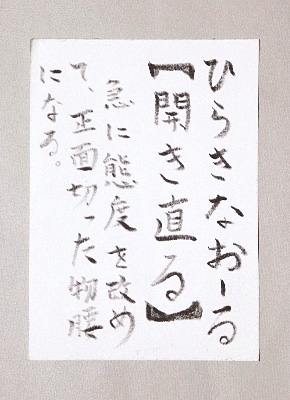 ひらきなおーる
【開き直る】
急に態度を改め
て、正面切った物腰
になる。